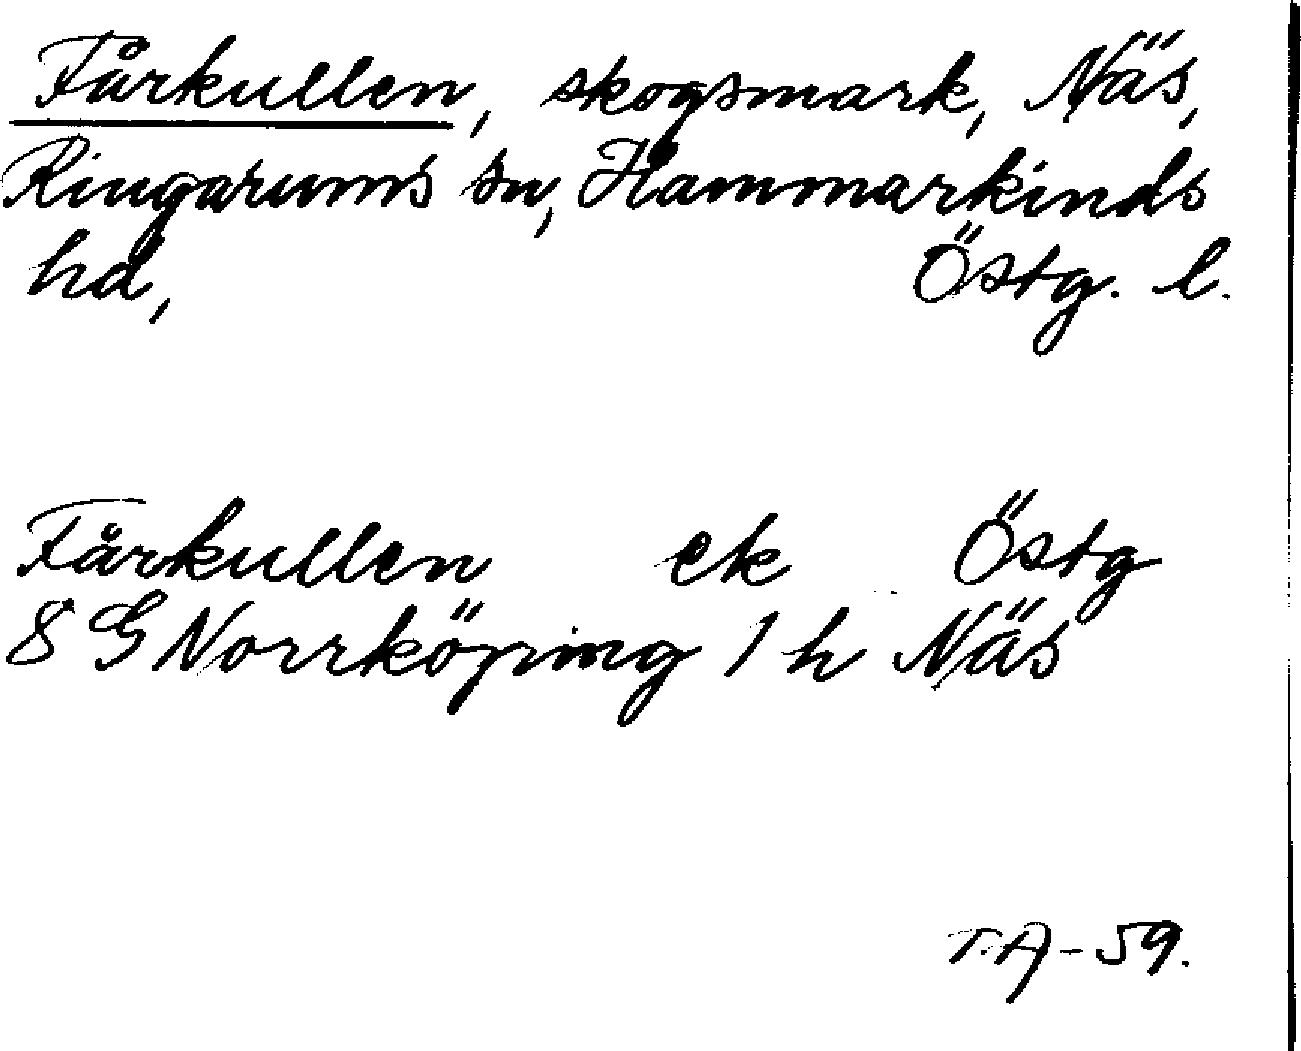 Fårkullen, skogsmark, Näs,
Ringarums sn, Hammarkinds
hd, Östg. l.
Fårkullen ek Östg
8 G Norrköping 1 h Näs
T.A-59.